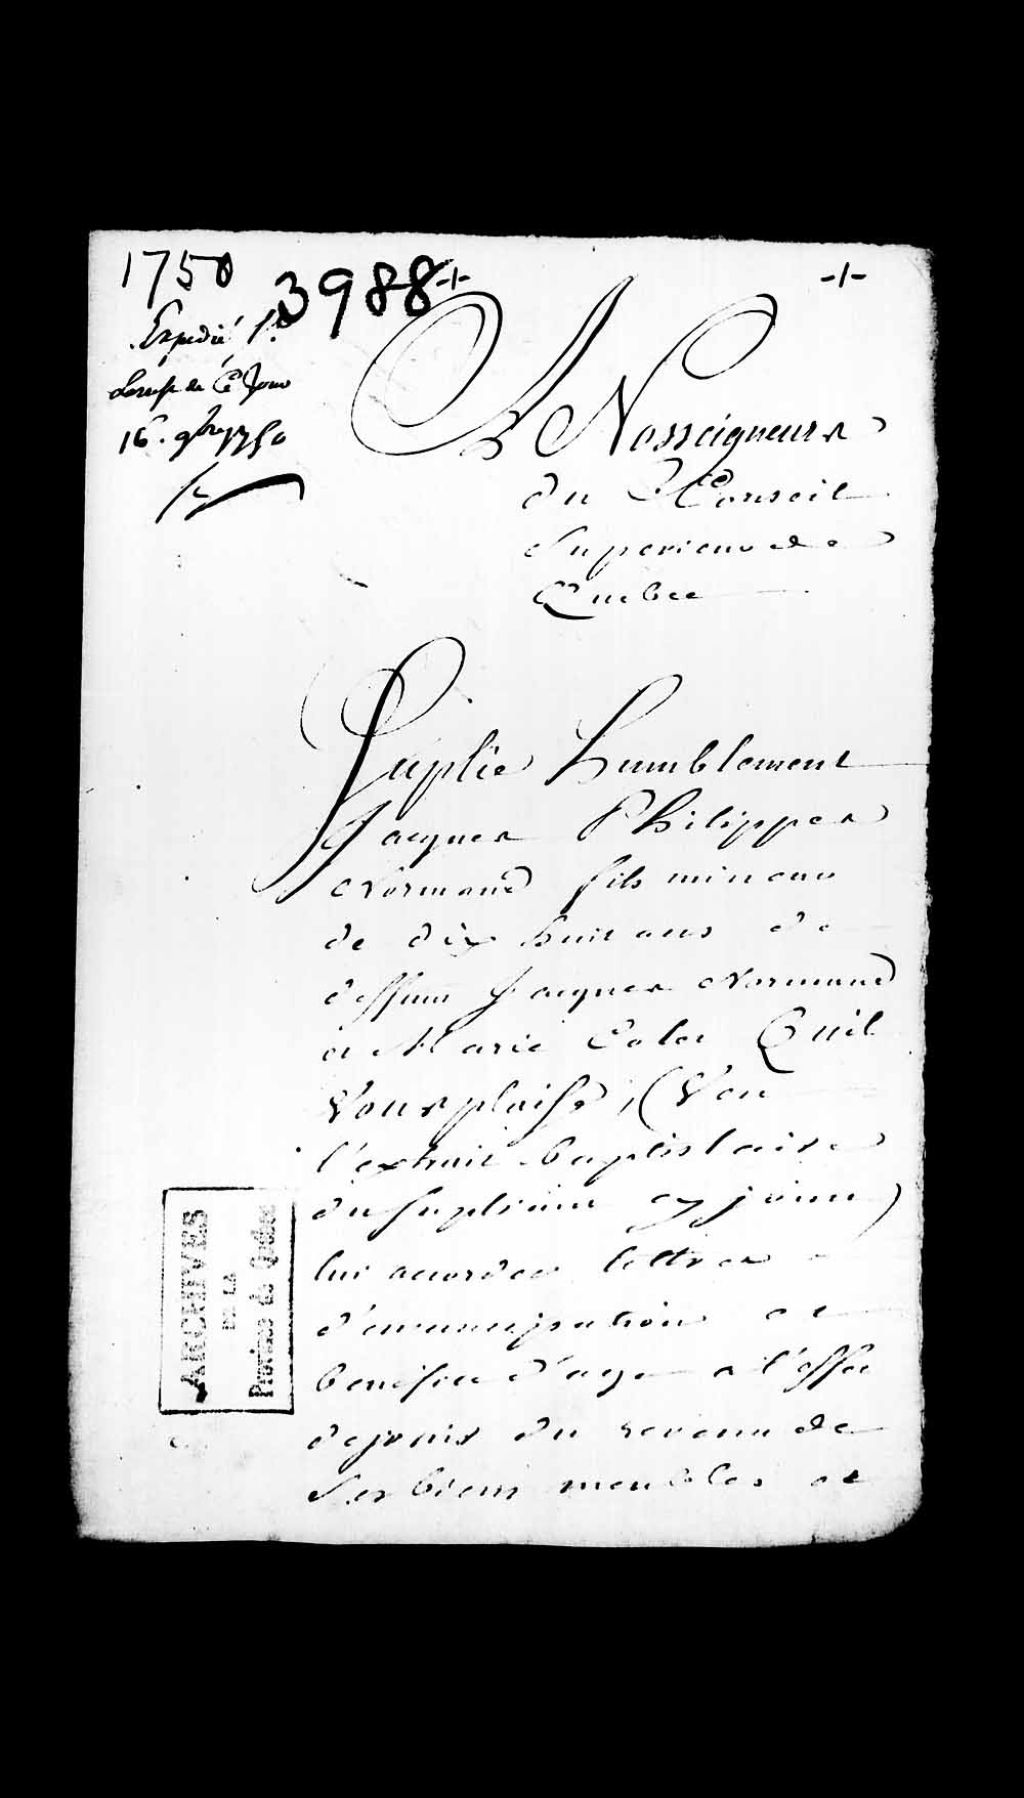 1750
3988
Expedié
de Ce Jour
16e. 9bre 1750
A Nosseigneurs
du Conseil
Superieur de
Quebec
Suplie humblement
Jacques Philippes
Normand fils mineur
de dix huit ans de
deffunt Jacques Normand
et Marie Quil
Vous plaise, (Veu
l'extrait baptistaire
du supliant cy joint)
lui accorder lettres
d'emancipation et
benefice d'age a l'effet
de jouir du revenu de
Ses biens meubles et
ARCHIVES
DE LA
Province de Québec